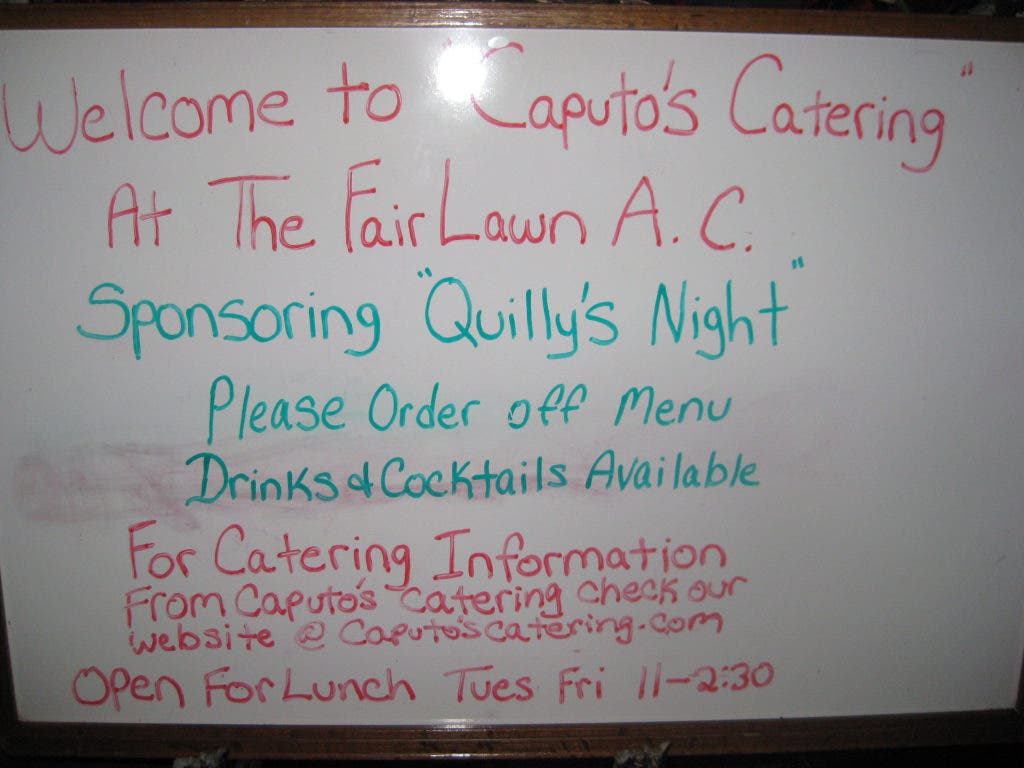 Welcome to "Caputo's Catering"
At The Fair Lawn A. C.
Sponsoring "Quilly's Night"
Please Order off Menu
Drinks & Cocktails Available
For Catering Information
From Caputo's Catering check our
website @ Caputo'scatering.com
Open For Lunch Tues Fri 11-2:30